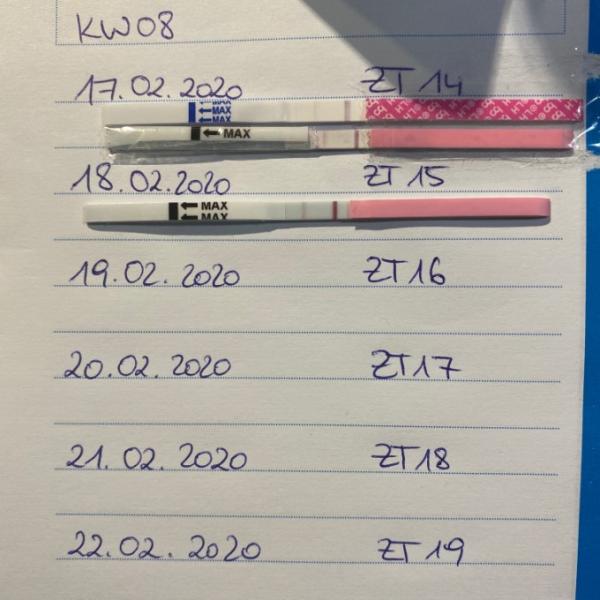 KW08
17.02.2020 ZT 14
MAX
MAX
MAX
MAX
18.02.2020 ZT 15
MAX
MAX
19.02.2020 ZT16
20.02.2020 ZT17
21.02.2020 ZT 18
22.02.2020 ZT 19